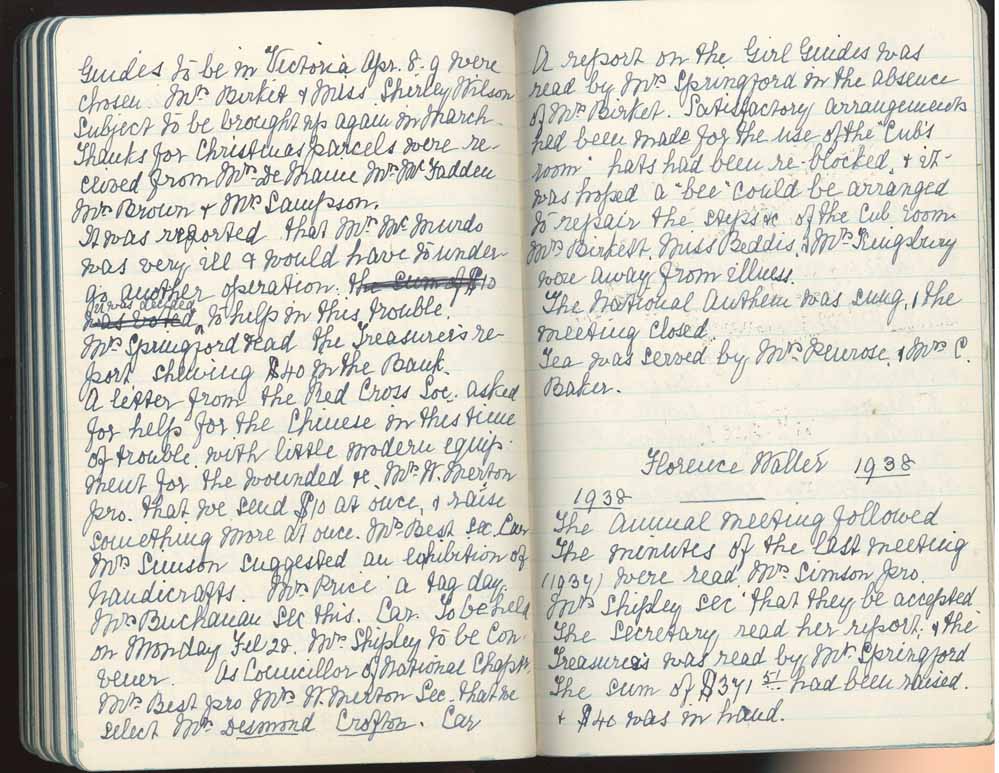 Guides to be in Victoria Apr. 8-9 were
chosen Mrs Birket & Miss Shirley Wilson
Subject to be brought up again in March.
Thanks for Christmas parcels were re-
cieved from Mrs De Mame Mrs McFadden
Mrs Brown & Mrs Sampson.
It was reported that Mrs McMurdo
was very ill & would have to under-
go another operation. the sum of $10
it was decided
was voted, to help in this trouble.
Mrs Springford read the Treasurer's re-
port shewing $40 in the Bank.
A letter from the Red Cross Soc. asked
for help for the Chinese in this time
of trouble. with little modern equip-
ment for the wounded &c. Mrs W. Merton
pro. that we send $10 at once, & raise
something more at once. Mrs Best Sec. Car
Mrs Simson suggested an exhibition of
handicrafts. Mrs Price a tag day.
Mrs Buchanan Sec this. Car. To be held
on Monday Feb 28. Mrs Shipley to be Con-
vener. As Councillor of National Chapt.
Mrs Best pro Mrs W. Merton Sec. that we
select Mrs Desmond Crofton. Car
A report on the Girl Guides was
read by Mrs Springford in the absence
of Mrs Birket. Satisfactory arrangements
had been made for the use of the "Cub's
room" hats had been re-blocked, & it-
was hoped a "bee" could be arranged
to repair the steps of the Cub room
Mrs Birkett, Miss Beddis, & Mrs Kingsbury
were away from illness.
The National Anthem was sung, & the
meeting closed.
Tea was served by Mrs Penrose, & Mrs C.
Baker.
Florence Waller 1938
1938
The Annual Meeting followed
The minutes of the last meeting
(1937) were read, Mrs Simson pro.
Mrs Shipley sec that they be accepted.
The Secretary read her report, & the
Treasurers was read by Mrs Springford
The sum of $371 51 had been raised.
& $40 was in hand.